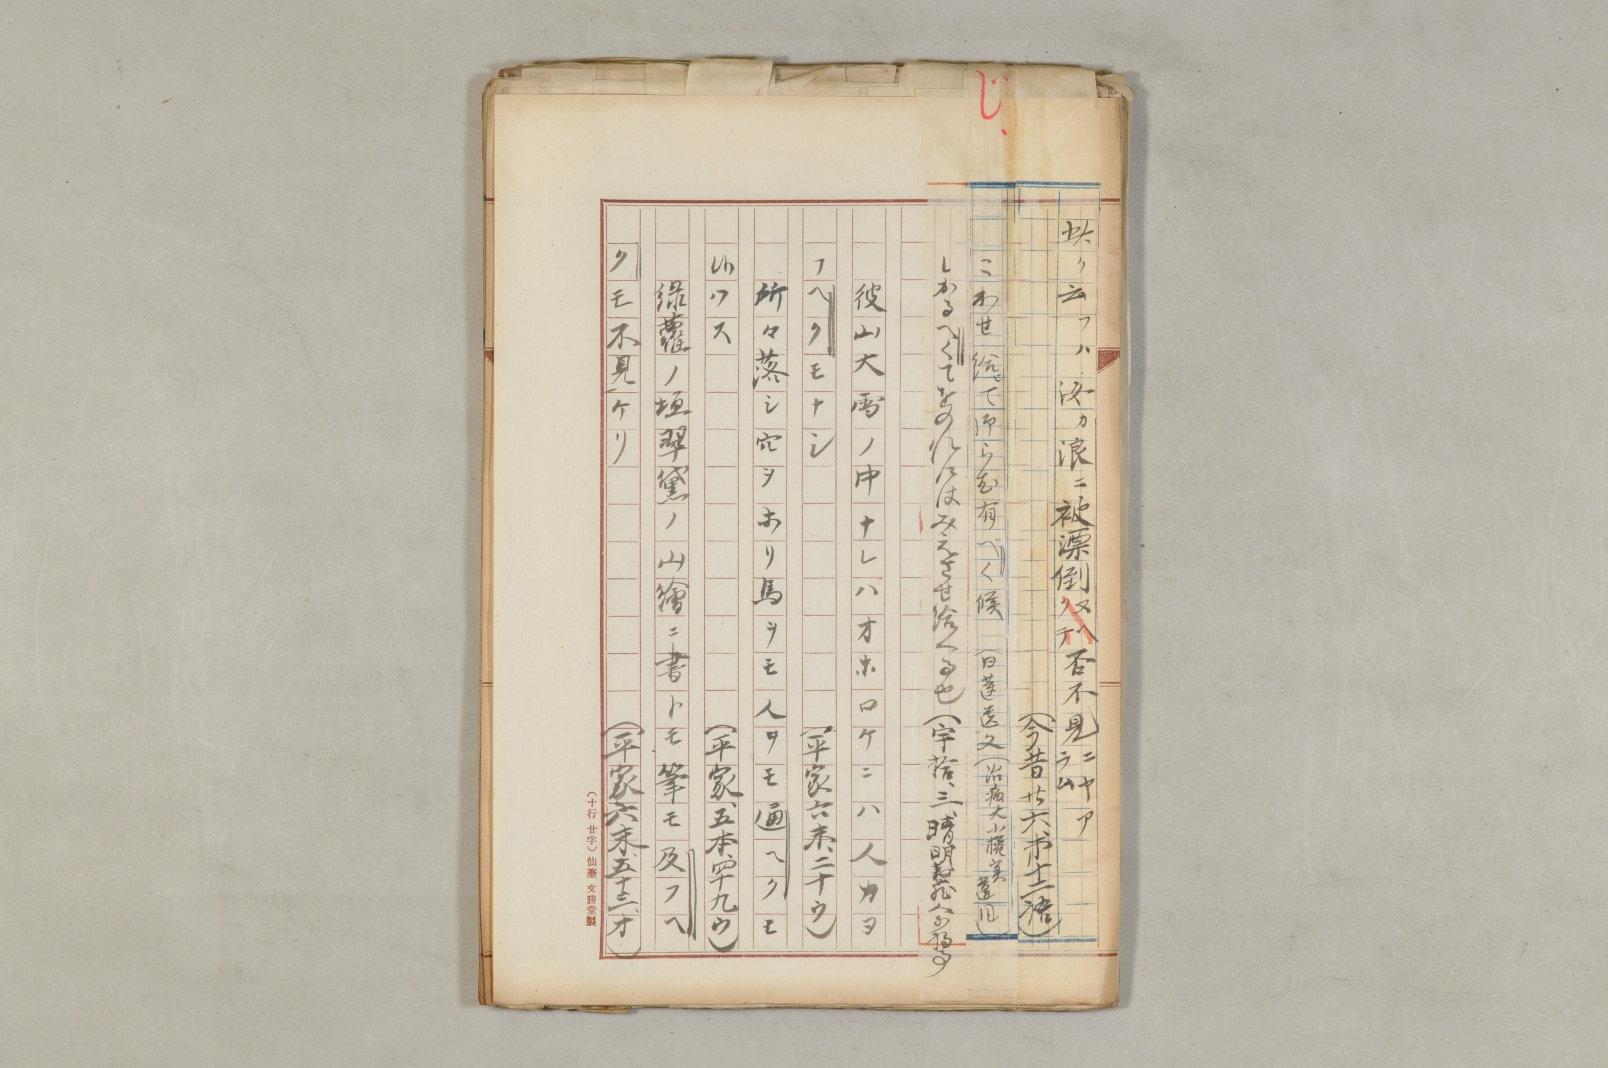 じ、
此ク云フハ汝カ浪ニ被漂倒ヌレハ否不見ニヤアラム
(今昔廿六ノ十二語)
こわせ給て御らむ有べく候 (日蓮遺文(治病大小権実違目)
しかるべくてをのれにはみえさせ給へる也 (宇拾、三、晴明蔵人少将
彼山大雪ノ中ナレハオホロケニハ人カヨ
フヘクモナシ (平家六末、二十ウ)
所々落シ穴ヲホリ馬ヲモ人ヲモ通ヘクモ
ハス (平家、五本、四十九ウ)
緑蘿ノ垣翠黛ノ山繪ニ書トモ筆モ及フヘ
クモ不見ケリ (平家六末、五十三、オ)
(十行廿字) 仙臺文勝堂製